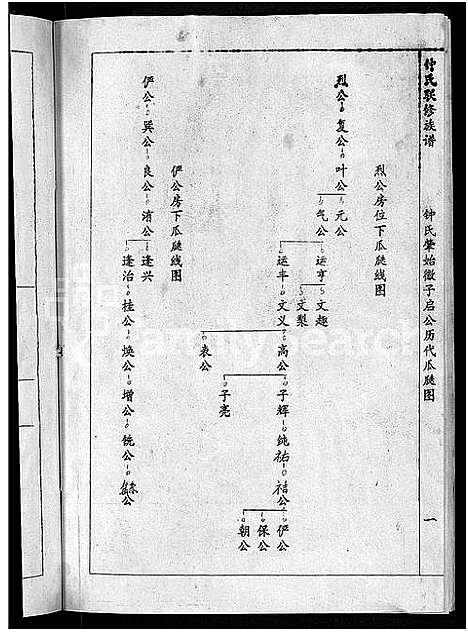 钟氏联修族谱
钟氏肇始微子启公历代瓜瓞图
一
烈公房位下瓜瓞线图
烈公 复公 叶公
元公
气公
运亨
运丰
文趣
文梨
文义
高公
衷公
子辉
子亮
纯祐
禧公
俨公
保公
朝公
俨公房下瓜瓞线图
俨公 巽公 良公 淯公
逢兴
逢治 桂公 焕公 增公 铳公
familysearch